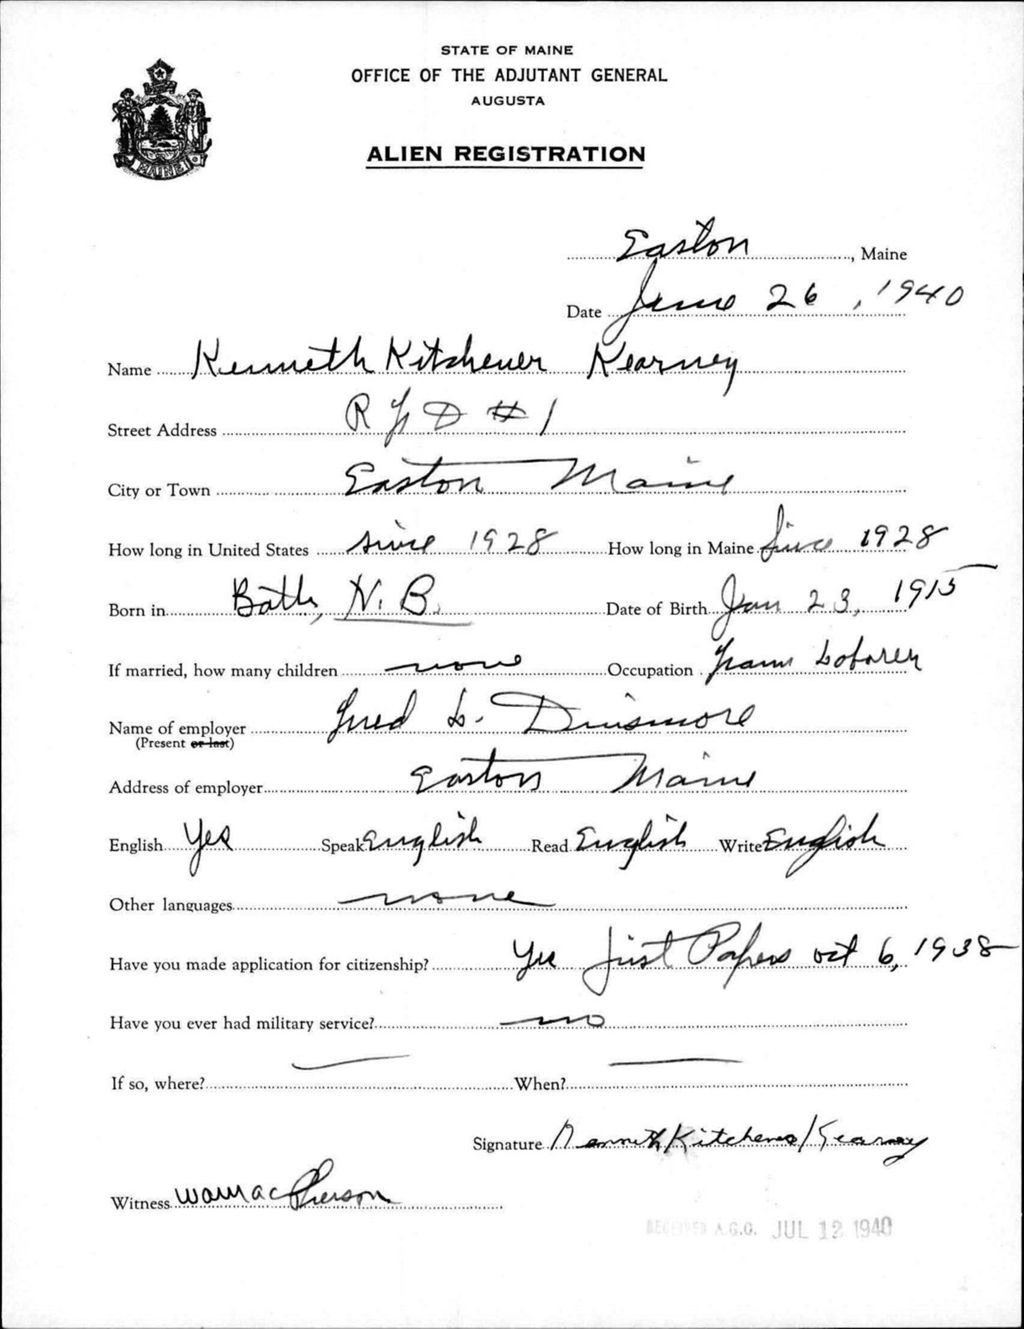 STATE OF MAINE
OFFICE OF THE ADJUTANT GENERAL
AUGUSTA
ALIEN REGISTRATION
MAINE
Easton, Maine
Date June 26, 1940
Name Kenneth Kitchener Kearney
Street Address R F D #1
City or Town Easton Maine
How long in United States since 1928 How long in Maine Since 1928
Born in Bath, N. B. Date of Birth Jan 23, 1915
If married, how many children none Occupation Farm Laborer
Name of employer Fred L. Dinsmore
(Present or last)
Address of employer Easton Maine
English Yes Speak English Read English Write English
Other languages none
Have you made application for citizenship? Yes First Papers Oct 6, 1938
Have you ever had military service? no
If so, where? When?
Signature Kenneth Kitchener Kearney
Witness MacPherson
RECEIVED A.G.O. JUL 12 1940